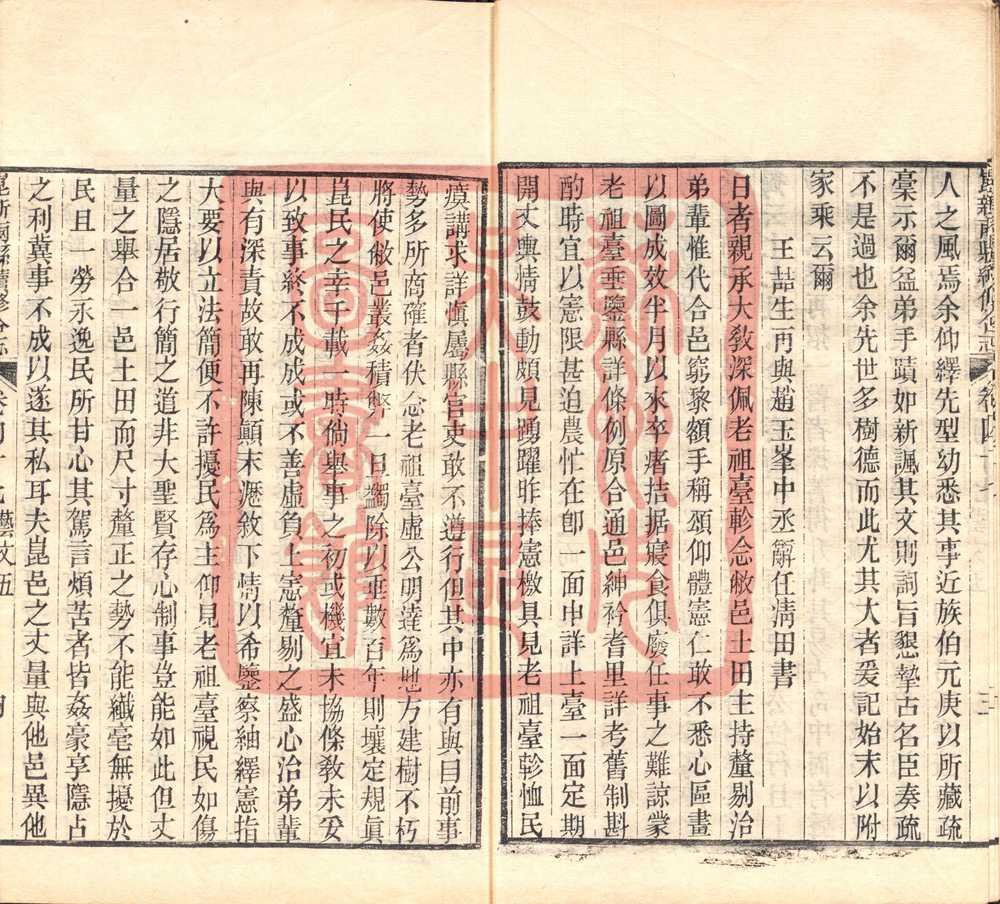 人之風焉余仰繹先型幼悉其事近族伯元庚以所藏疏
稾示爾盆弟手蹟如新諷其文則詞旨懇摯古名臣奏疏
不是過也余先世多樹德而此尤其大者爰記始末以附
家乘云爾
王喆生再與趙玉峯中丞辭任淸田書
日者親承大敎深佩老祖臺軫念敝邑土田主持釐剔治
弟輩惟代合邑窮黎額手稱頌仰體憲仁敢不悉心區畫
以圖成效半月以來卒瘏拮据寢食俱廢任事之難諒蒙
老祖臺垂鑒縣詳條例原合通邑紳衿耆里詳考舊制斟
酌時宜以憲限甚迫農忙在卽一面申詳上臺一面定期
開丈輿情鼓動頗見踴躍昨捧憲檄具見老祖臺軫恤民
瘼講求詳愼屬縣官吏敢不遵行但其中亦有與目前事
勢多所商確者伏念老祖臺虛公明達爲地方建樹不朽
將使敝邑叢姦積弊一旦蠲除以垂數百年則壤定規眞
崑民之幸千載一時倘舉事之初或機宜未協條敎未妥
以致事終不成成或不善虛負上憲釐剔之盛心治弟輩
與有深責故敢再陳顚末瀝敘下情以希鑒察紬繹憲指
大要以立法簡便不許擾民爲主仰見老祖臺視民如傷
之隱居敬行簡之道非大聖賢存心制事豈能如此但丈
量之舉合一邑土田而尺寸釐正之勢不能纖毫無擾於
民且一勞永逸民所甘心其駕言煩苦者皆姦豪享隱占
之利冀事不成以遂其私耳夫崑邑之丈量與他邑異他
崑新兩縣續修合志 卷四十七 藝文五